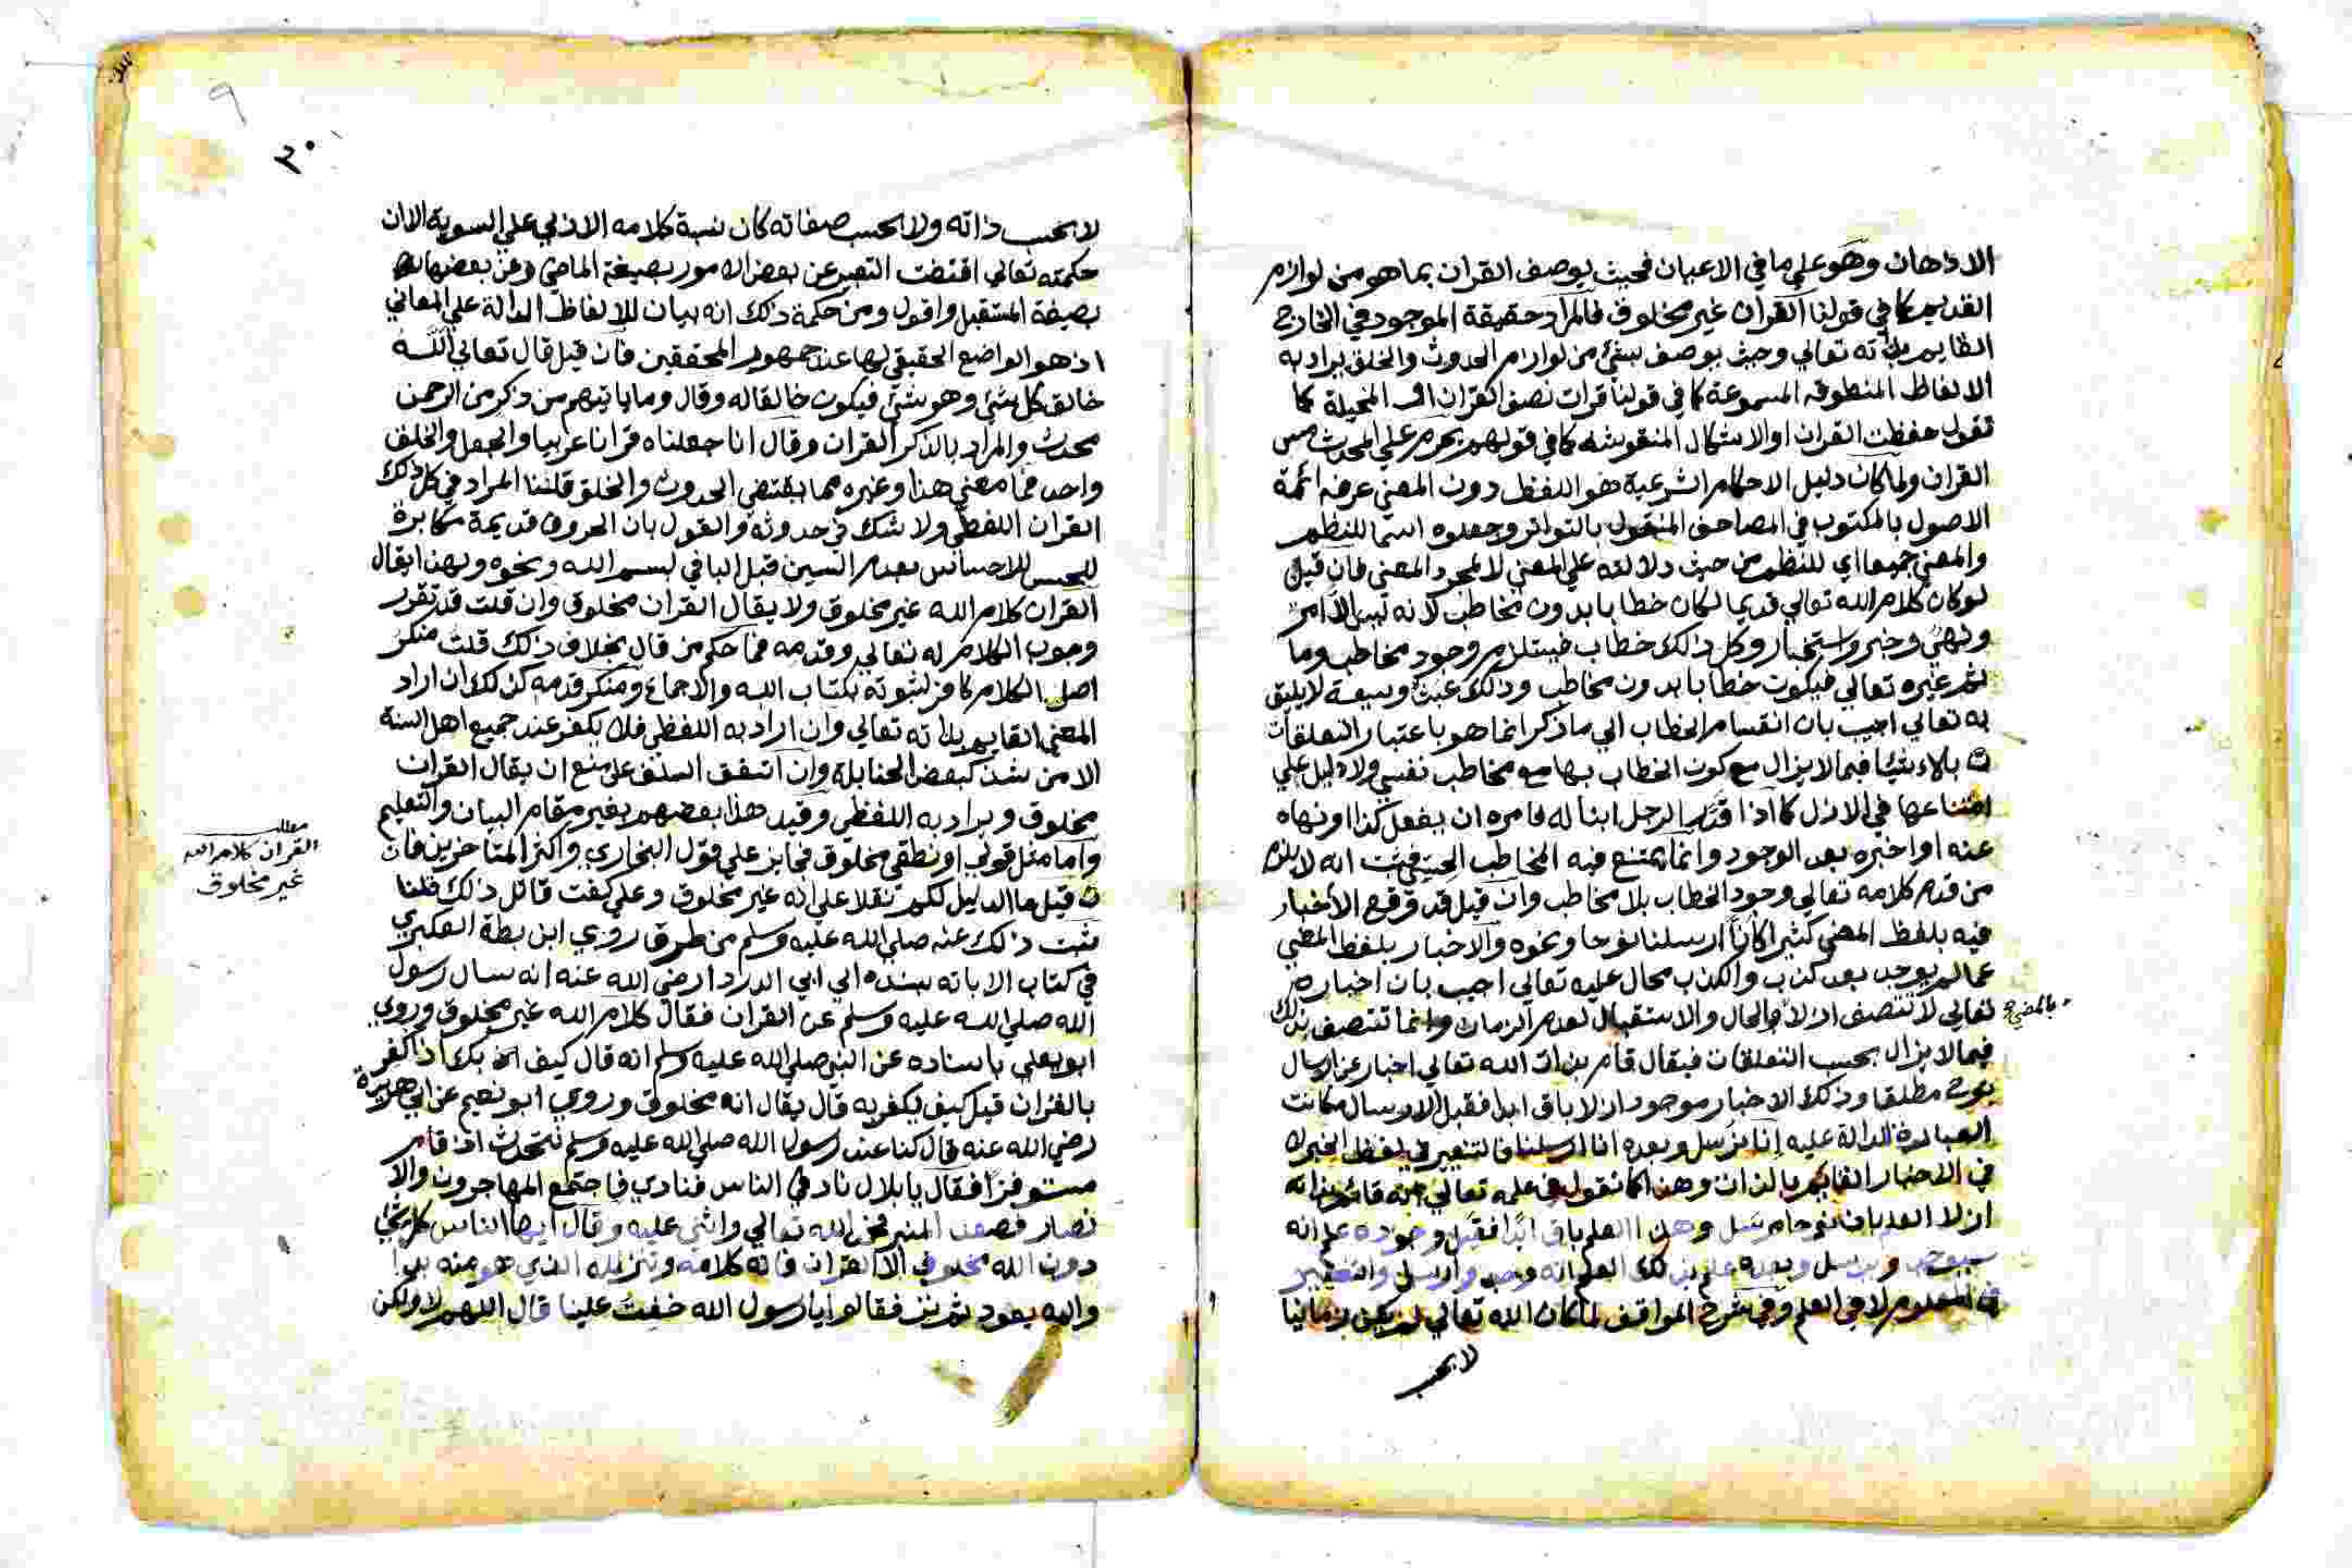 الاذهان وهو علي ما في الاعيان فحيث يوصف القران بما هو من لوازم
القديم كما في قولنا القران غير مخلوق فالمراد حقيقة الموجود في الخارج
القايم بذاته تعالي وحيث يوصف بشئ من لوازم الحدوث والخلق يراد به
الالفاظ المنطوقه المسموعة كما في قولنا قرات نصف القران او المخيلة كما
تقول حفظت القران او الاشكال المنقوشه كما في قولهم يحرم علي المحدث مس
القران ولما كان دليل الاحكام الشرعية هو اللفظ دون المعني عرفه ائمة
الاصول بالمكتوب في المصاحف المنقول بالتواتر وجعلوه اسما للنظم
والمعني جميعا اي للنظم من حيث دلالته علي المعني لا لمجرد المعني فان قيل
لو كان كلام الله تعالي قديما لكان خطابا بدون مخاطب لانه الامر
ونهي وخبر واستخبار وكل ذلك خطاب فيستلزم وجود مخاطب وما
ثم غيره تعالي فيكون خطابا بدون مخاطب وذلك عبث لا يليق
به تعالي اجيب بان انقسام الخطاب الي ما ذكر انما هو باعتبار التعلقات
فيما لا يزال مع كون الخطاب بها مع مخاطب نفسي ولا دليل علي
امتناعها في الازل كما اذا قدر الرجل ابنا له فامره ان يفعل كذا او نهاه
عنه او اخبره بعد الوجود وانما يمتنع فيه المخاطب الحسي فثبت انه لا يلزم
من قدم كلامه تعالي وجود الخطاب بلا مخاطب وان قيل قد وقع الاخبار
فيه بلفظ المضي كثيرا كانا ارسلنا نوحا ونحوه والاخبار بلفظ المضي
عما لم يوجد بعد كذب والكذب محال عليه تعالي اجيب بان اخباره
تعالي لا تتصف ازلا والحال والاستقبال لعدم الزمان وانما تتصف بذلك
بالمضي صح
فيما لا يزال بحسب التعلقات فيقال قام بذات الله تعالي اخبار عن ارسال
نوح مطلقا وذلك الاخبار موجود ازلا باق ابدا فقبل الارسال كانت
العبارة الدالة عليه انا نرسل وبعده انا ارسلنا فالتغير في لفظ الخبر لا
في الاخبار القايم بالذات وهذا كما نقول في علمه تعالي انه قائم بذاته
ازلا العلم بان نوحا مرسل وهذا العلم باق ابدا فقبل وجوده علم انه
سيوجد ويرسل وبعده علم بذلك العلم انه وجد وارسل والتغيير
في المعلوم لا في العلم وفي شرح المواقف لما كان الله تعالي لم يكن زمانيا
لا بحسب
٣٠
لا بحسب ذاته ولا بحسب صفاته كان نسبة كلامه الازلي علي السوية الا ان
حكمته تعالي اقتضت التعبير عن بعض الامور بصيغة الماضي وعن بعضها
بصيغة المستقبل واقول ومن حكمة ذلك انه بيان للالفاظ الدالة علي المعاني
اذ هو الواضع الحقيقي لها عند جمهور المحققين فان قيل قال تعالي الله
خالق كل شئ وهو شئ فيكون خالقا له وقال وما ياتيهم من ذكر من الرحمن
محدث والمراد بالذكر القران وقال انا جعلناه قرانا عربيا والجعل والخلق
واحد فما معني هذا وغيره مما يقتضي الحدوث والخلق قلنا المراد في كل ذلك
القران اللفظي ولا شك في حدوثه والقول بان الحروف قديمة مكابرة
للحس للاحساس بعدم السين قبل الباء في بسم الله ونحوه ولهذا يقال
القران كلام الله غير مخلوق ولا يقال القران مخلوق وان قلت قد تقرر
وجوب الكلام له تعالي وقدمه فما حكم من قال بخلاف ذلك قلت منكر
اصل الكلام كافر لثبوته بكتاب الله والاجماع ومنكر قدمه كذلك ان اراد
المعني القايم بذاته تعالي وان اراد به اللفظي فلا يكفر عند جميع اهل السنة
الا من شذ كبعض الحنابلة وان اتفق السلف علي منع ان يقال القران
مخلوق ويراد به اللفظي وقيد هذا بعضهم بغير مقام البيان والتعليم
واما مثل قولي او نطقي مخلوق فجايز علي قول البخاري واكثر المتاخرين فان
قيل ما الدليل لكم نقلا علي انه غير مخلوق وعلي كفت قائل ذلك قلنا
ثبت ذلك عنه صلي الله عليه وسلم من طرق روي ابن بطة العكبري
في كتاب الابانه بسنده الي ابي الدردا رضي الله عنه انه سال رسول
الله صلي الله عليه وسلم عن القران فقال كلام الله غير مخلوق وروي
ابو يعلي باسناده عن النبي صلي الله عليه وسلم انه قال كيف بك اذا كفر
بالقران قيل كيف يكفر به قال يقال انه مخلوق وروي ابو نعيم عن ابي هريرة
رضي الله عنه قال كنا عند رسول الله صلي الله عليه وسلم نتحدث اذ قام
مستوفزا فقال يا بلال ناد في الناس فنادي فاجتمع المهاجرون والا
نصار فصعد المنبر فحمد الله تعالي واثني عليه وقال ايها الناس كل شئ
دون الله مخلوق الا القران فانه كلامه وتنزيله الذي هو منه بدا
واليه يعود ثم نزل فقالوا يا رسول الله خفت علينا قال اللهم لا ولكن
مطلب
القران كلام الله
غير مخلوق